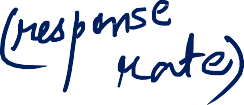 (response
rate)